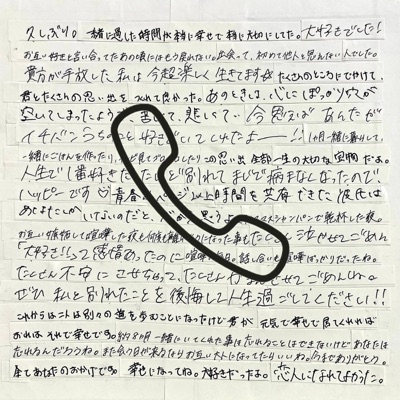 久しぶり。一緒に過した時間が本当に幸せで本当に大切にしてた。大好きでした!
お互い好きと言い合ってたあの頃にはもう戻れない。出会って、初めて他人と思えない人でした。
貴方が手放した私は今超楽しく生きてます たくさんのところにでかけて、
君とたくさんの思い出をつくれて良かった。あのときは、心にぽっかり穴が
空いてしまったよう 苦しくて、悲しいで 今思えば あんたが
イチバンうちのこと好きでいてくれたよーー!! 1ヶ月一緒に暮らして、
一緒にごはんを作ったり、 この思い出全部一生の大切な宝物だよ。
人生で1番好きだった 別れてまじで病まなくなったので、
ハッピーです♡ 青春 時間を共有できた彼氏は
あとにもさきにも いないのだと、 スマスシャンパンで乾杯した夜。
お互い嫉妬して喧嘩した夜も何度も たくさん泣かせてごめん
「大好き!」って感情あったのに喧嘩 毎日。話し合いも喧嘩ばっかりだったね。
たくさん不安にさせちゃって、たくさん させてごめんね。
ぜひ私と別れたことを後悔して人生過ごしてください!!
これからは二人は別々の道を歩むことになったけど君が元気で幸せで居てくれれば
おれはそれで幸せです。約8ヶ月一緒にいてくれた事は忘れることはできないけどあなたは
忘れるんだろうね。また会う日が来るならお互い大人になってたらいいね。今までありがとう。
全てあなたのおかげです。幸せになってね。大好きだったよ。恋人になれてよかった。